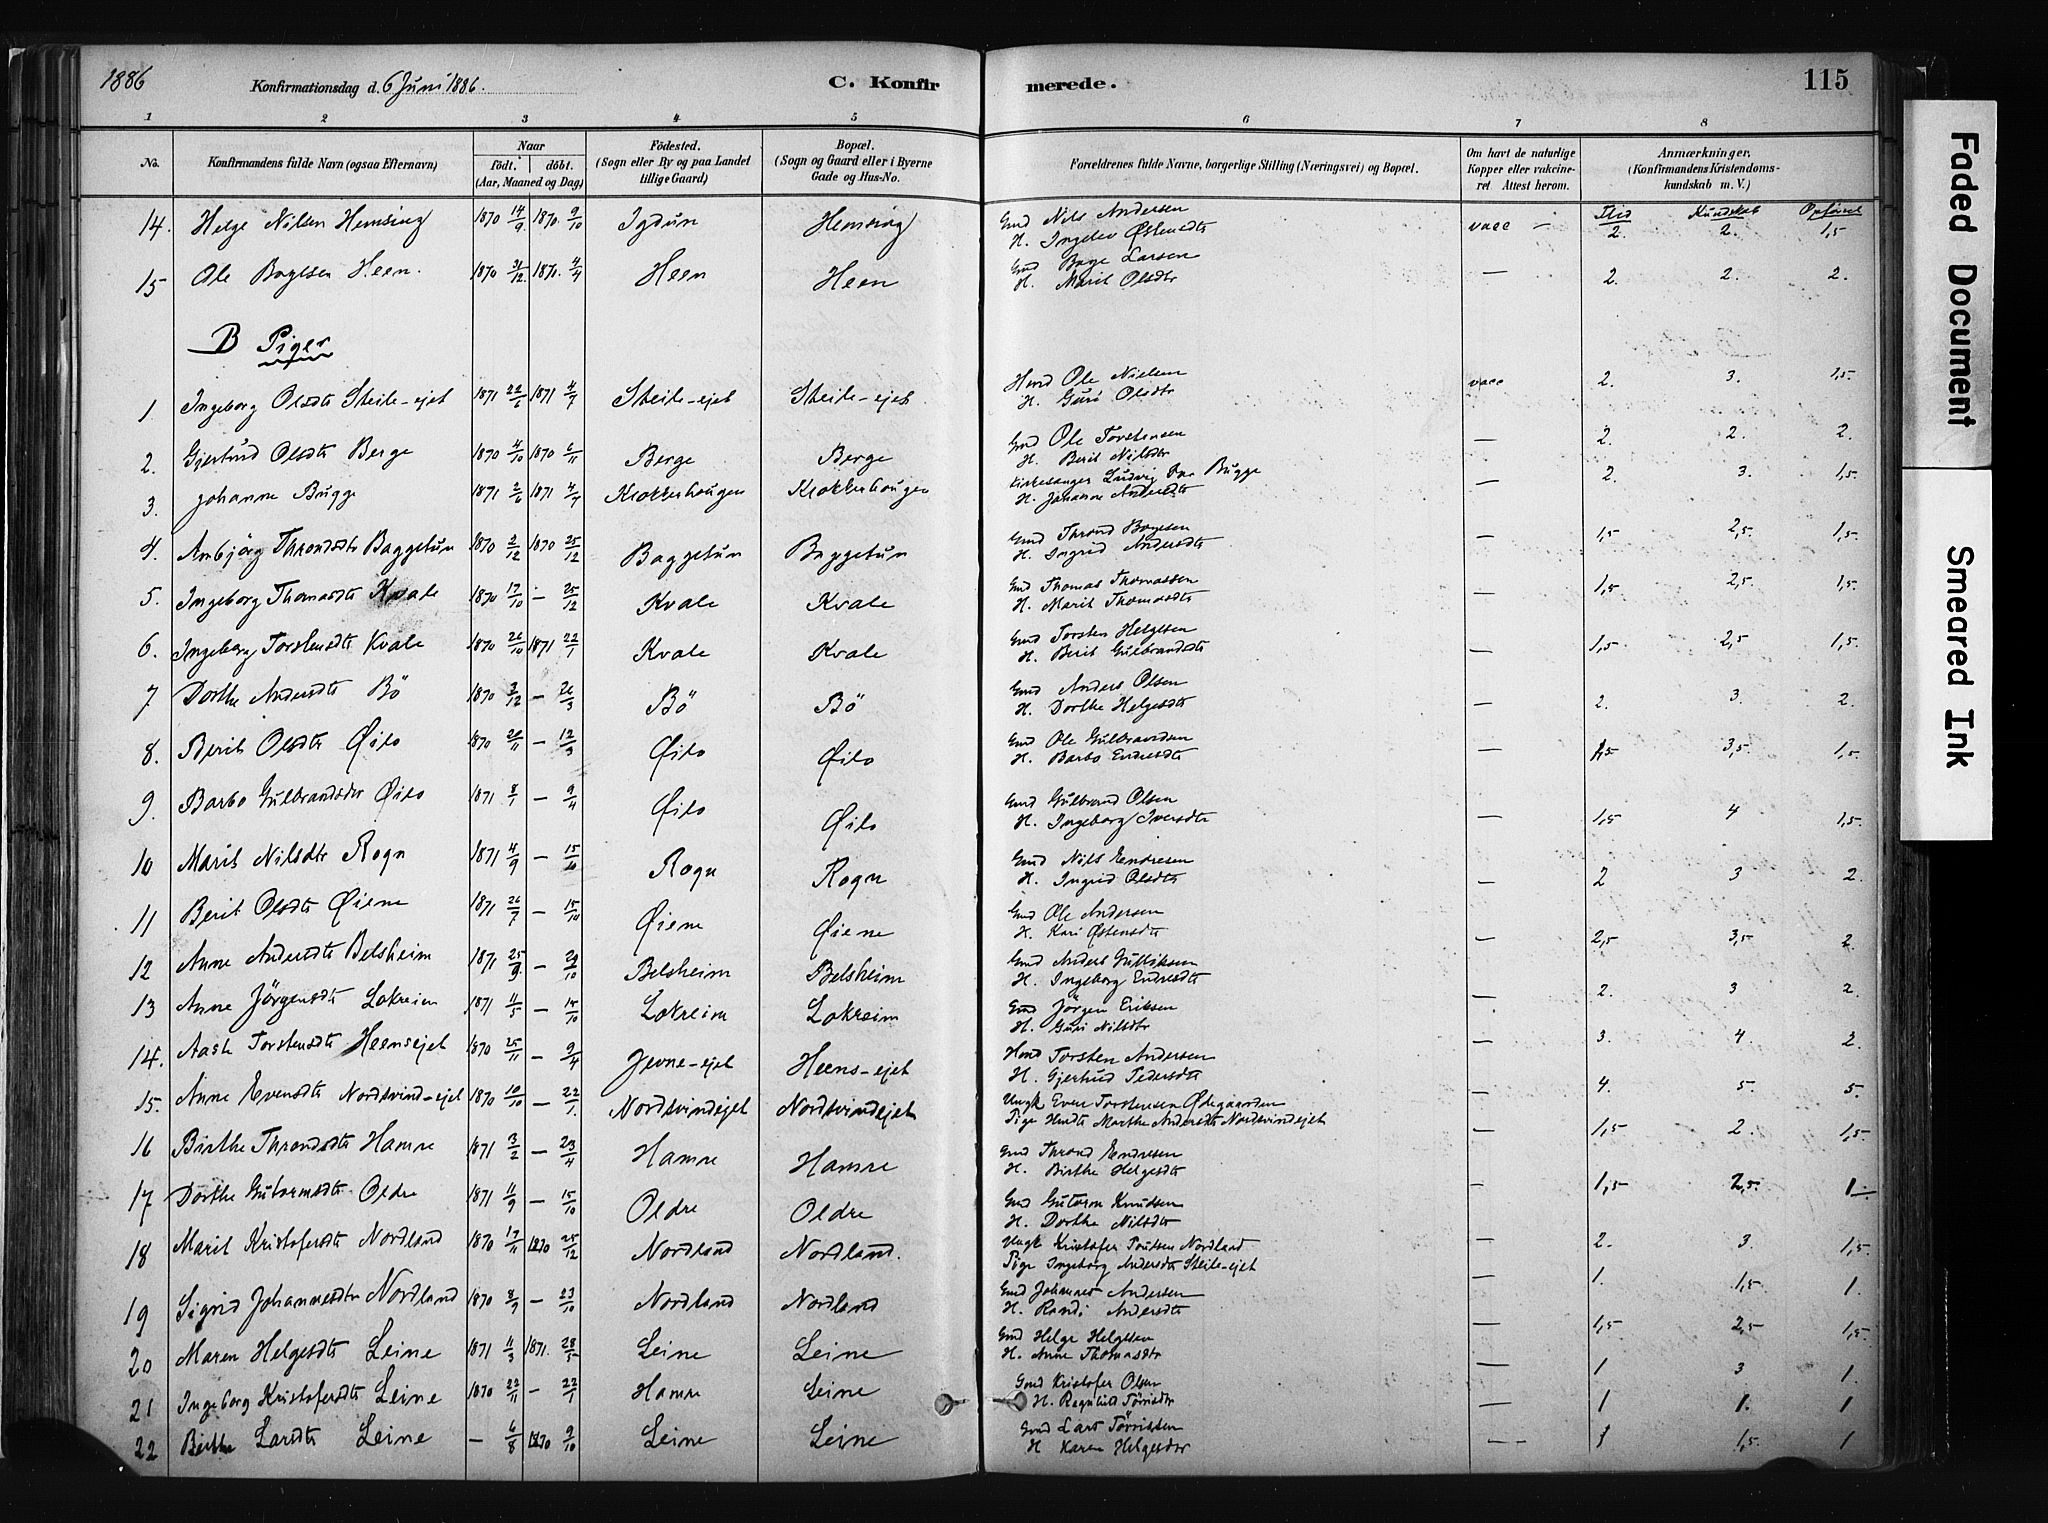 1886 Konfirmationsdag d. 6 Juni 1886. C. Konfirmerede. 115
1 2 3 4 5 6 7 8
No. Konfirmandens fulde Navn (ogsaa Efternavn) Naar født. døbt. (Aar, Maaned og Dag) Fødested. (Sogn eller By og paa Landet tillige Gaard) Bopæl. (Sogn og Gaard eller i Byerne Gade og Hus-No. Forældrenes fulde Navne, borgerlige Stilling (Næringsvei) og Bopæl. Om havt de naturlige Kopper eller vakcineret Attest herom. Anmærkninger. (Konfirmandens Kristendomskundskab m. V.)
Flid Kundskab Opførsel
14. Helge Nilsen Hemsing 1870 14/9 1870 9/10 Igdun Hemsing Gmd Nils Andersen vacc — 2. 2. 1,5
H. Ingelev Østensdtr
15 Ole Bagesen Heen. 1870 31/12 1870. 4/4 Heen Heen Gmd Bage Larsen — 2. 2. 2.
H. Marit Olsdtr
B Piger
1 Ingeborg Olsdtr Steile-ejet 1871 22/6 1871 4/7 Steile-ejet Steile-ejet Hmd Ole Nielsen vacc 2. 3. 1,5.
H. Guri Olsdtr
2. Gjertrud Olsdtr Berge 1870 4/10 1870 6/11 Berge Berge Gmd Ole Torstensen — 2. 2. 2.
H. Berit Nilsdtr
3. Johanne Bugge 1871 2/6 1871 4/7 Krokkerhougen Krokkerhougen Kirkesanger Ludvig Bugge — 2. 3. 1,5.
H. Johanne Andersdtr
4. Ambjörg Throndsdtr Baggetun 1870 2/12 1870 25/12 Baggetun Baggetun Gmd Thrond Bagesen — 1,5 2,5. 1,5.
H. Ingrid Andersdtr
5. Ingeborg Thomasdtr Kvale 1870 17/10 — 25/12 Kvale Kvale Gmd Thomas Thomassen — 1,5 2,5. 1,5.
H. Marit Thomasdtr
6. Ingeborg Torstensdtr Kvale 1870 26/10 1871 22/1 Kvale Kvale Gmd Torsten Helgesen — 1,5 2,5 1,5.
H. Berit Gulbrandsdtr
7 Dorthe Andersdtr Bö 1870 3/12 — 26/3 Bö Bö Gmd Anders Olsen — 2. 3. 2.
H. Dorthe Helgesdtr
8. Berit Olsdtr Øilo 1870 26/11 — 12/3 Øilo Øilo Gmd Ole Gulbrandsen — 1,5 3,5. 1,5.
H. Barbo Endresdtr
9. Barbo Gulbrandsdtr Øilo 1871 8/1 — 9/4 Øilo Øilo Gmd Gulbrand Olsen — 1,5 4 1,5.
H. Ingeborg Iversdtr
10 Marit Nilsdtr Rogn 1871 4/9 — 15/10 Rogn Rogn Gmd Nils Endresen — 2 3 2.
H. Ingrid Olsdtr
11 Berit Olsdtr Øiene 1871 26/7 — 15/10 Øiene Øiene Gmd Ole Andersen — 2,5 3,5 2.
H. Kari Østensdtr
12 Anne Andersdtr Belsheim 1871 25/9. — 29/10 Belsheim Belsheim Gmd Anders Gulliksen — 2. 3 2.
H. Ingeborg Endresdtr
13 Anne Jörgensdtr Lokreim 1871 11/5 — 15/10 Lokreim Lokreim Gmd Jörgen Eriksen — 3. 4 2.
H. Guri Nilsdtr
14. Aase Torstensdtr Heensejet 1870 25/11 — 9/4 Jevne-ejet Heens-ejet Hmd Torsten Andersen — 4. 5. 5.
H. Gjertrud Pedersdtr
15. Anne Evensdtr Nordsvind-ejet 1870 10/10 — 22/1. Nordsvindejet Nordsvindejet Ungk Even Torstensen Ødegaarden — 1,5 2. 1,5.
Pige Hmdtr Marthe Andersdtr Nordsvindejet
16 Birthe Throndsdtr Hamre 1871 3/2 — 23/4 Hamre Hamre Gmd Thrond Endresen — 1,5 2,5. 1.
H. Birthe Helgesdtr
17 Dorthe Gutormsdtr Oldre 1871 11/9 — 15/10 Oldre Oldre Gmd Gutorm Knudsen — 2. 3. 1,5.
H. Dorthe Nilsdtr
18 Marit Kristofersdtr Nordland 1870 17/11 1870 25/12 Nordland Nordland. Ungk Kristofer Poulsen Nordland — 1. 1,5. 1.
Pige Ingeborg Andersdtr Steile-ejet
19 Sigrid Johannesdtr Nordland 1870 8/9 — 23/10 Nordland Nordland Gmd Johannes Andersen — 1,5 2,5 1,5.
H. Randi Andersdtr
20 Maren Helgesdtr Leine 1871 11/3 1871. 28/5 Leine Leine Gmd Helge Helgesen — 1 3 1.
H. Anne Thomasdtr
21 Ingeborg Kristofersdtr Leine 1870 22/11 — 22/1 Hamre Leine Gmd Kristofer Olsen — 1 1. 1
H. Ragnhild Törrisdtr
22 Birthe Larsdtr Leine — 6/8 1870 9/10 Leine Leine Gmd Lars Törrissen — 1 1,5. 1
H Karen Helgesdtr
Faded Document
Smeared Ink